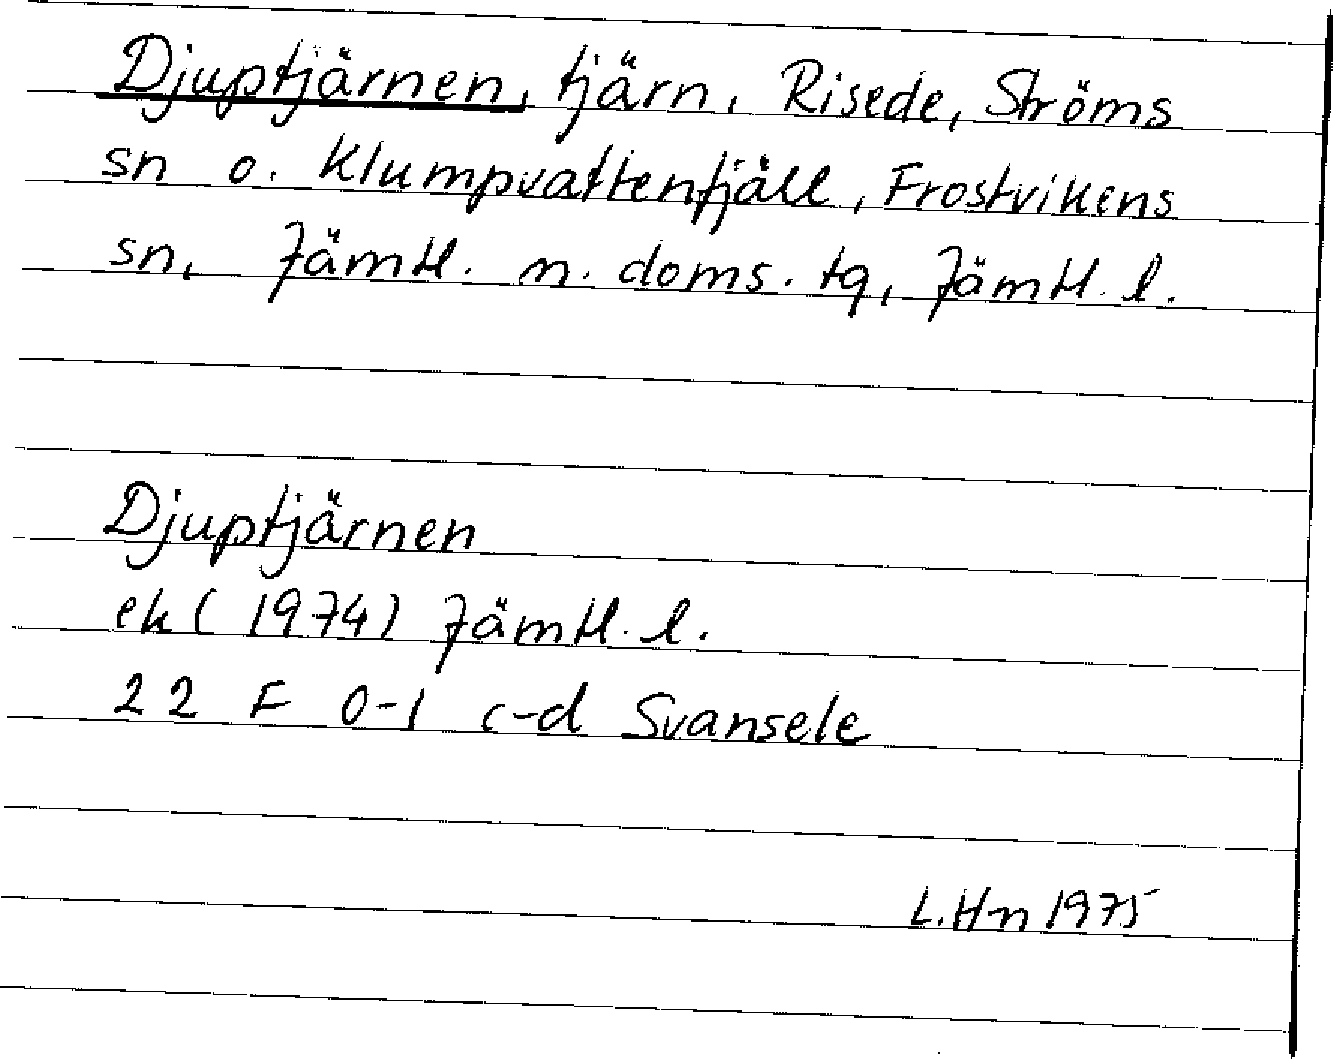 Djuptjärnen, tjärn, Risede, Ströms
sn o. Klumpvattenfjäll, Frostvikens
sn, Jämtl. n. doms. tg, Jämtl. l.
Djuptjärnen
ek (1974) Jämtl. l.
22 F 0-1 c-d Svansele
L. Hn 1975